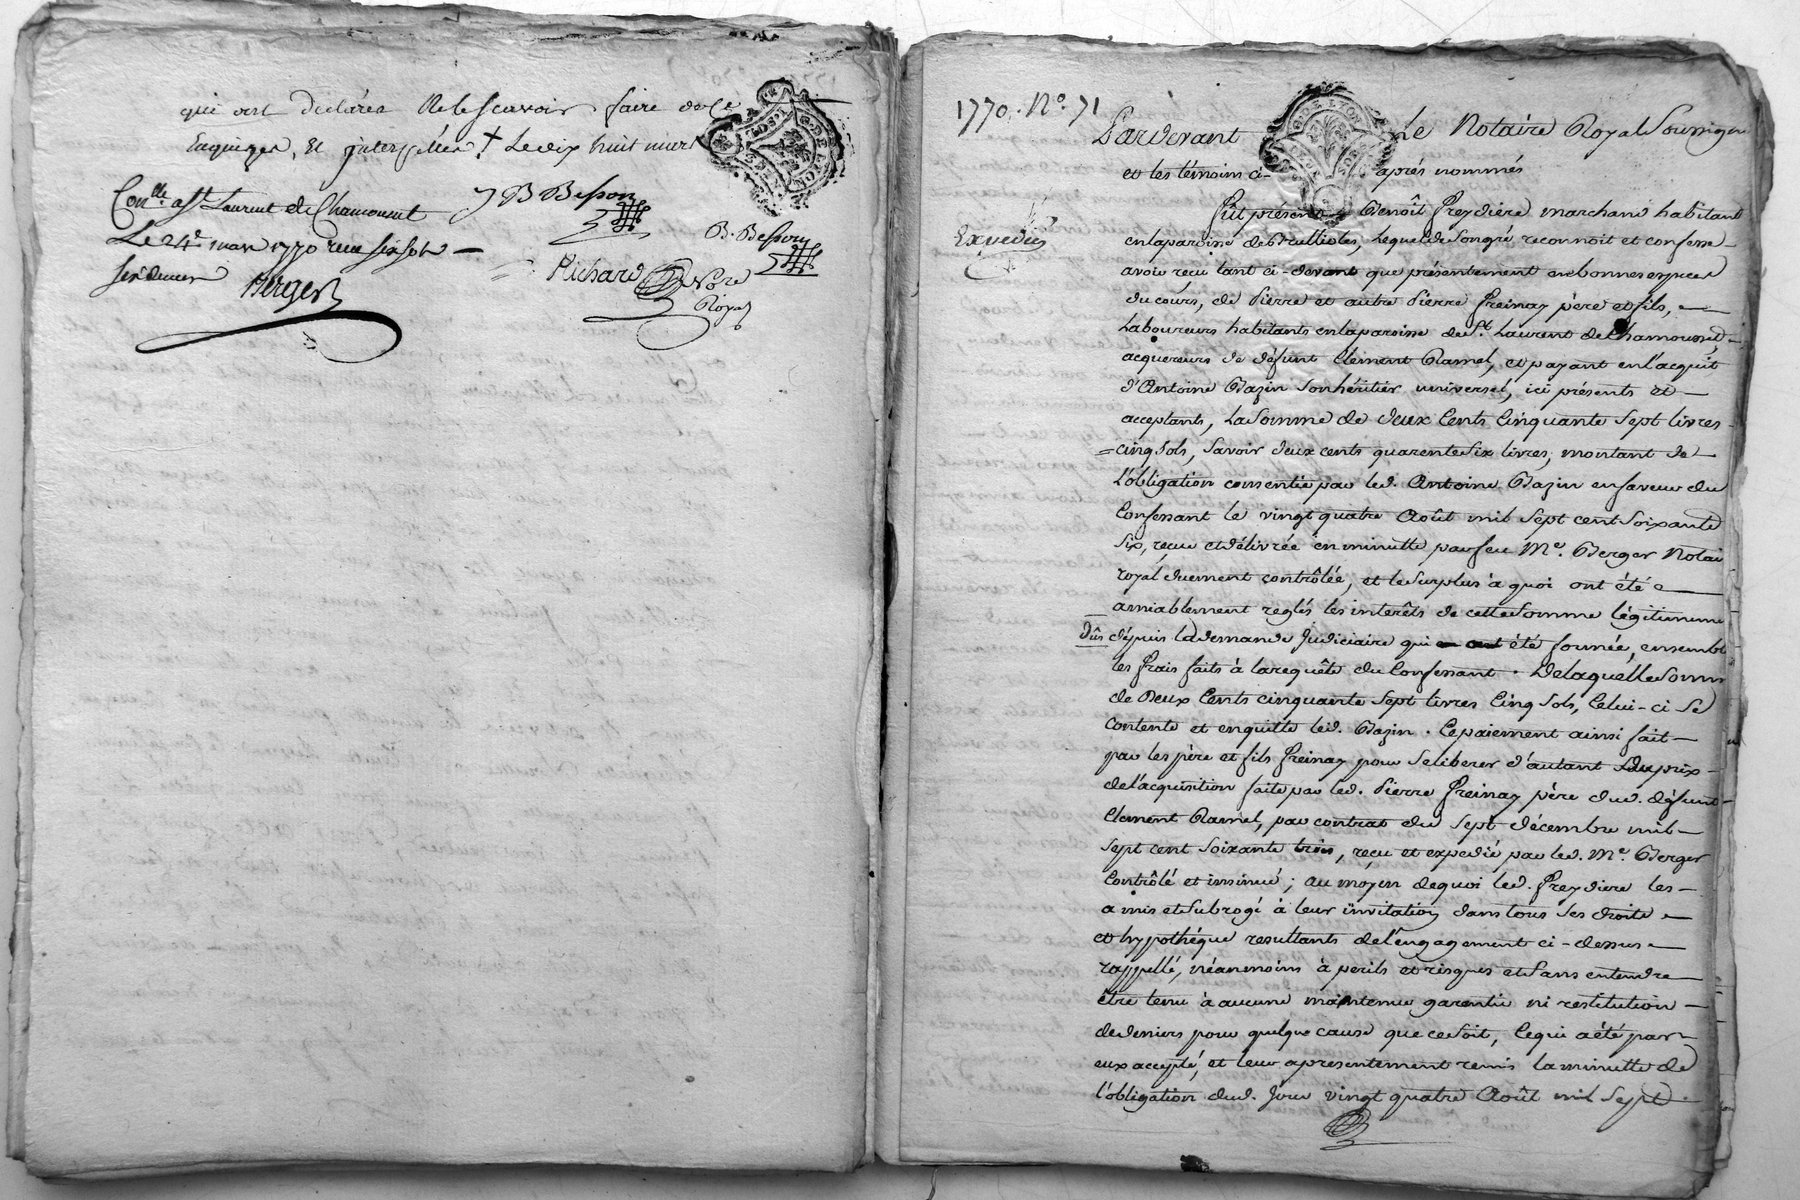 qui ont declarés Ne le scavoir faire de ce
Enquisgés, Et interpellés ‡ Le dix huit mars
Conlle. a St. Laurent de Chamousset
Le 24e. mars 1770 reçu six sols
six deniers Berger
J B Besson
B. Besson
Richard Nore
Royal
G. DE LYON
1770. No. 71
Pardevant Le Notaire Royal Soussigné
et les témoins ci- après nommés
Expedié
Fut présent Benoît Freydière marchand habitant
en la paroisse de Brullioles, lequel de son gré reconnoit et confesse
avoir reçu tant ci-devant que présentement en bonnes especes
du cours, de Pierre et autre Pierre Freinay père et fils,
Laboureurs habitants en la paroisse de St. Laurent de Chamousset
acquereurs de défunt Clement Ramel, et payant en l'acquit
d'Antoine Bazin son héritier universel, ici présents et
acceptants, La Somme de deux Cents Cinquante Sept livres
cinq Sols, Savoir deux cents quarente Six livres, montant de
l'obligation consentie par led. Antoine Bazin en faveur du
Confessant le vingt quatre Août mil Sept cent Soixante
Six, reçue et délivrée en minutte par feu Me. Berger Notai
royal duement contrôlée, et le Surplus à quoi ont été
amiablement reglés les interêts de cette Somme légitimeme
dûs dépuis la demande Judiciaire qui été formée, ensembl
les frais faits à la requête du Confessant. De laquelle Somm
de Deux Cents cinquante Sept livres Cinq Sols, Celui-ci Se
Contente et enquitte led. Bazin. Ce paiement ainsi fait
par les père et fils Freinay pour se liberer d'autant du prix
de l'acquisition faite par led. Pierre Freinay père dud. défunt
Clement Ramel, par contrat du Sept décembre mil
Sept cent Soixante trois, reçu et expedié par led. Me. Berger
Contrôlé et insinué; au moyen de quoi led. Freydiere les
a mis et Subrogé à leur invitation dans tous Ses droits
et hypothéque resultants de l'engagement ci-dessus
rappellé, néanmoins à perils et risques et Sans entendre
être tenu à aucune maintenue garentie ni restitution
de deniers pour quelque cause que ce Soit, Ce qui a été par
eux accepté, et leur a presentement remis la minutte de
l'obligation dud. Jour vingt quatre Août mil Sept